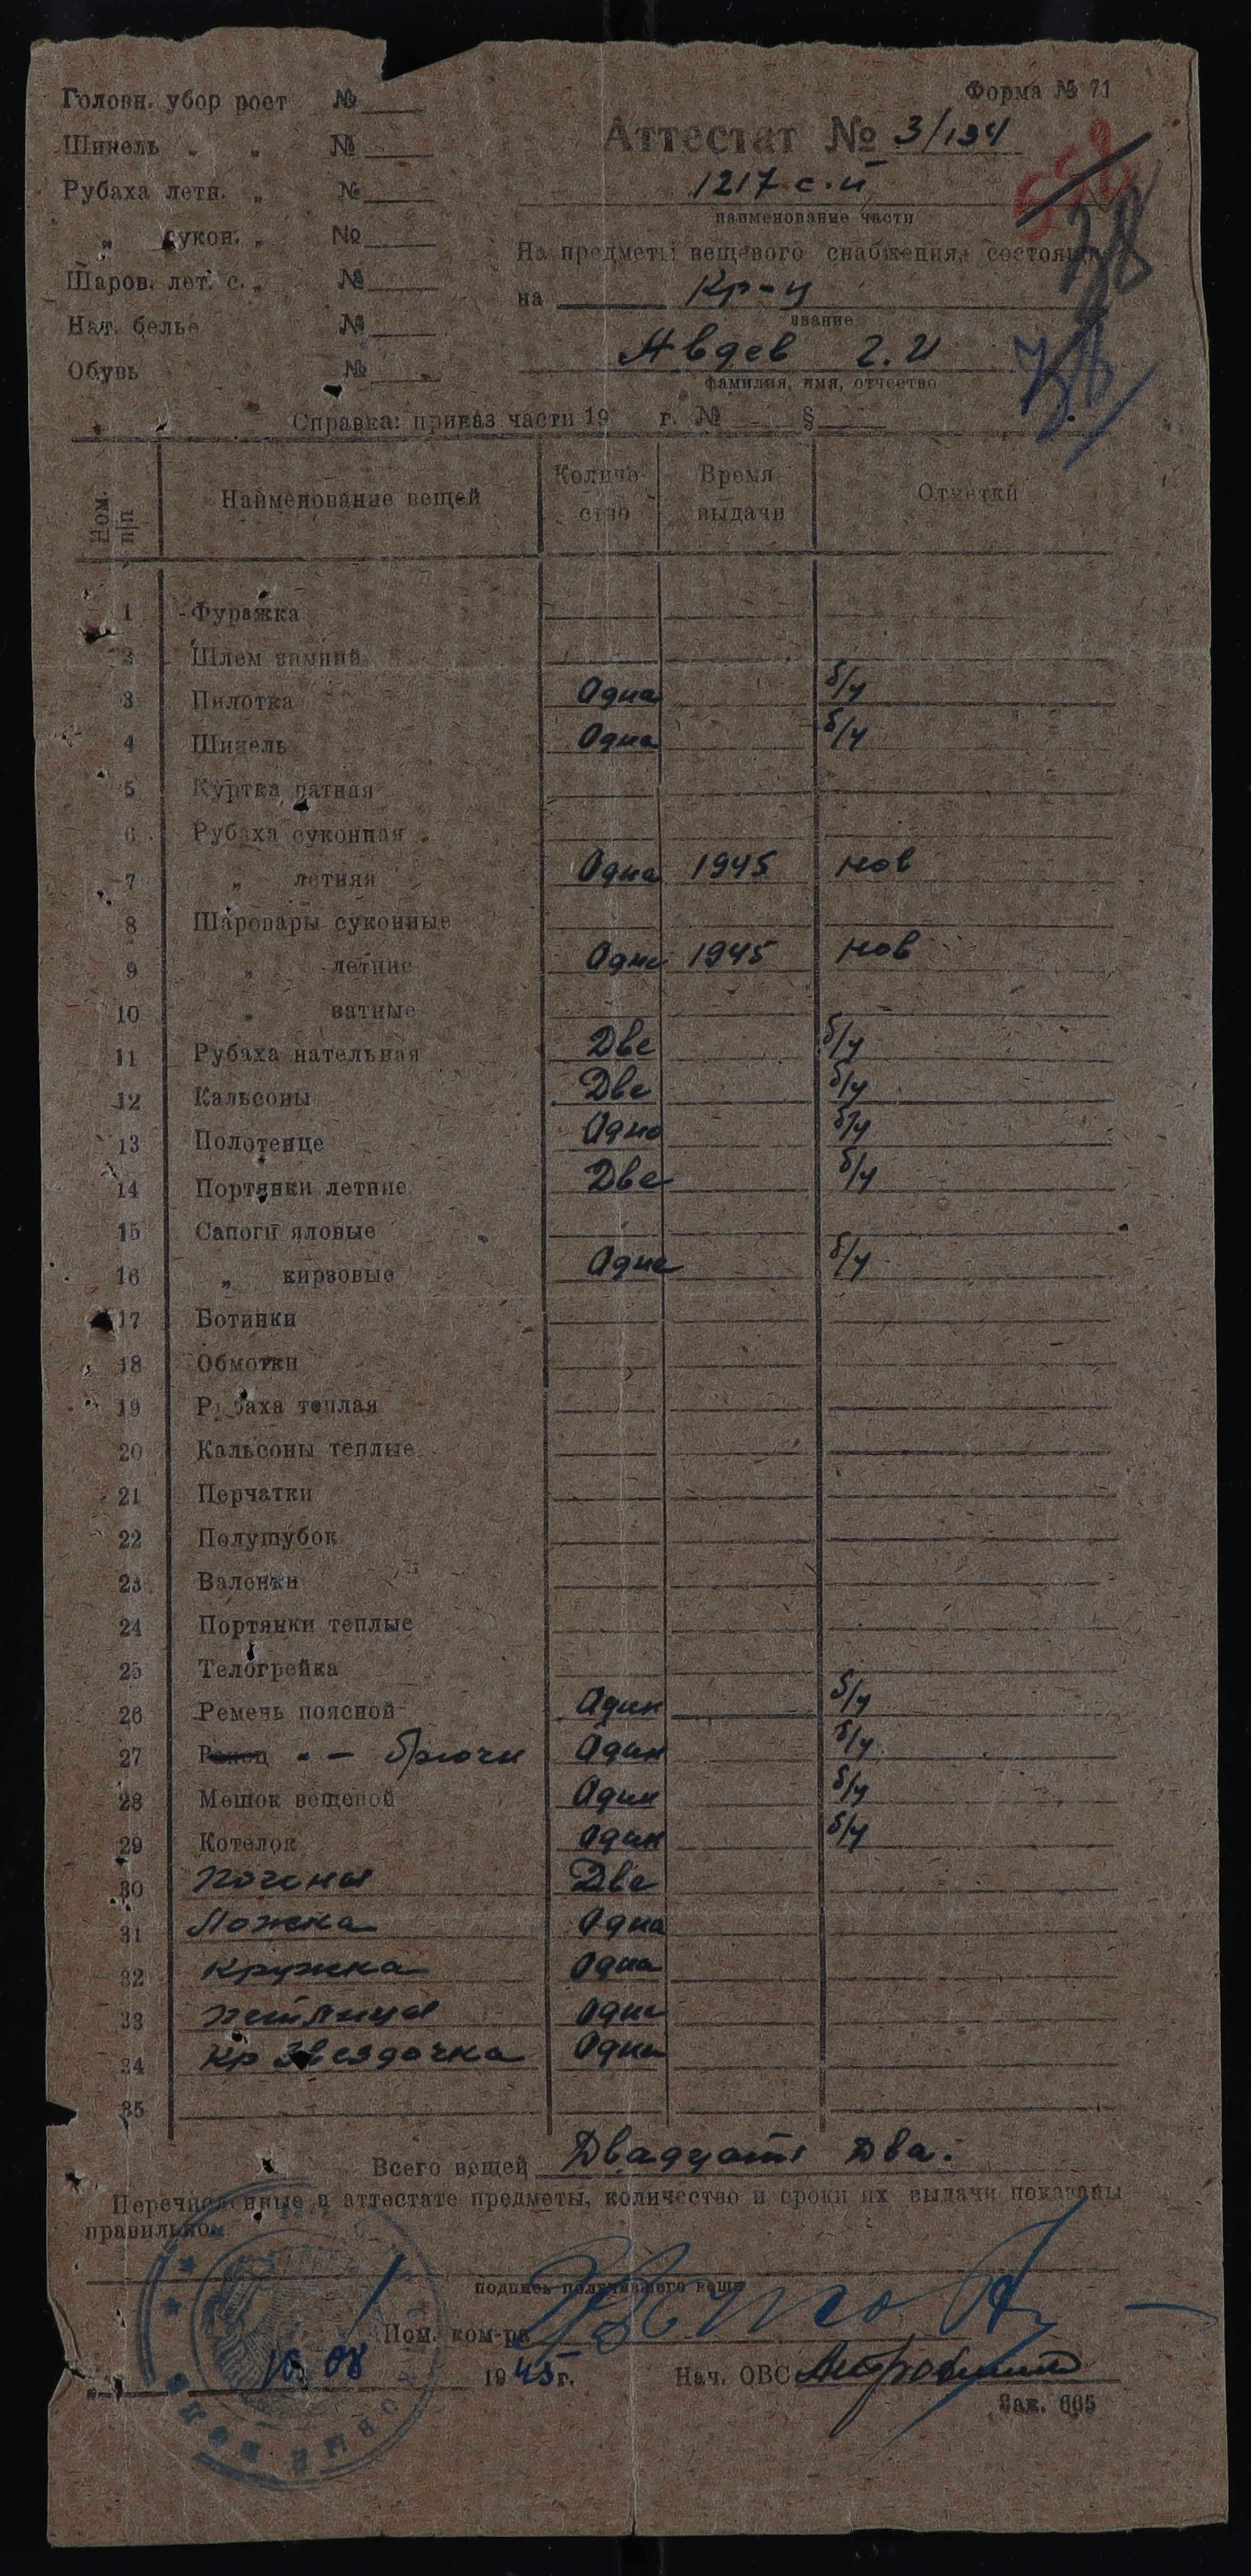 Форма № 71
Головн. убор рост №
Шинель „ „ №
Рубаха летн. „ №
„ сукон. „ №
Шаров. лет. с. „ №
Нат. белье №
Обувь №
Аттестат № 3/134
1217 с.п
наименование части
На предметы вещевого снабжения, состоящ
на Кр-ц
звание
Авдев Г.И
фамилия, имя, отчество
38
78
Справка: приказ части 19 г. № §
Ном. п/п Наименование вещей Количество Время выдачи Отметки
1 Фуражка
2 Шлем зимний
3 Пилотка Одна б/у
4 Шинель Одна б/у
5 Куртка ватная
6 Рубаха суконная
7 „ летняя Одна 1945 нов
8 Шаровары суконные
9 „ летние Одне 1945 нов
10 „ ватные
11 Рубаха нательная Две б/у
12 Кальсоны Две б/у
13 Полотенце Одно б/у
14 Портянки летние Две б/у
15 Сапоги яловые
16 „ кирзовые Одне б/у
17 Ботинки
18 Обмотки
19 Рубаха теплая
20 Кальсоны теплые
21 Перчатки
22 Полушубок
23 Валенки
24 Портянки теплые
25 Телогрейка
26 Ремень поясной Один б/у
27 Ранец " – брючн Один б/у
28 Мешок вещевой Один б/у
29 Котелок Один б/у
30 Погоны Две
31 Ложка Одна
32 Кружка Одна
33 Петлицы Одне
34 Кр Звездочка Одна
35
Всего вещей Двадцать два.
Перечисленные в аттестате предметы, количество и сроки их выдачи показаны
правильно.
подпись получившего вещи
Пом. ком-ра
10 08 1945 г. Нач. ОВС
Зак. 665